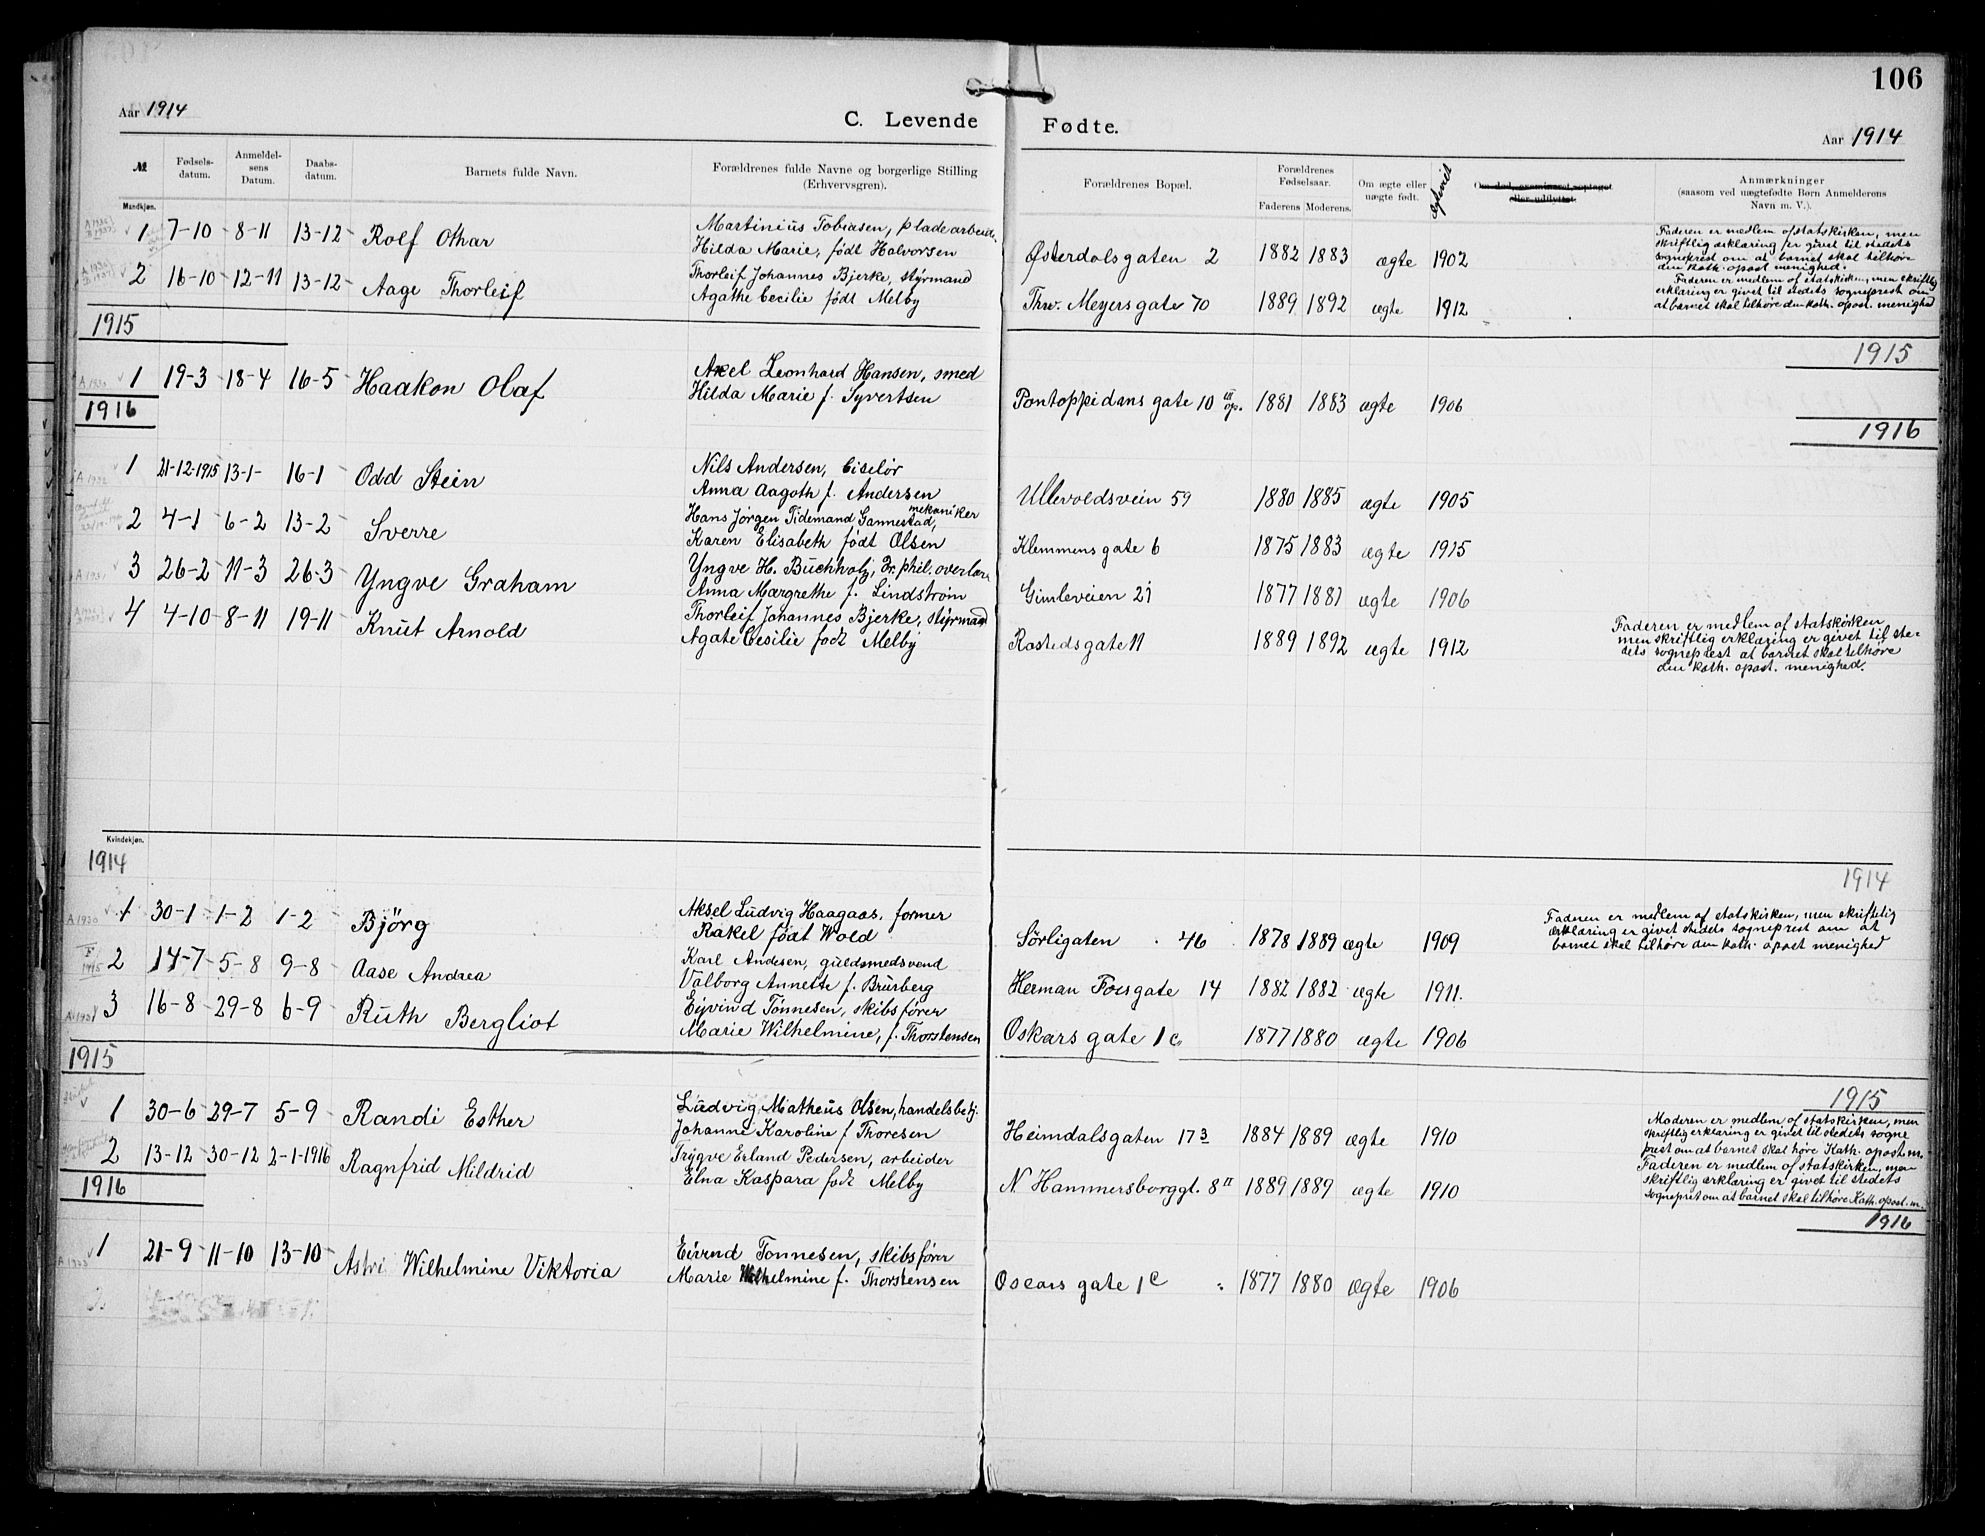 106
Aar 1914
C. Levende Fødte.
Aar 1914
№ Fødsels-datum. Anmeldel-sens Datum. Daabs-datum. Barnets fulde Navn. Forældrenes fulde Navne og borgerlige Stilling (Erhvervsgren). Forældrenes Bopæl. Forældrenes Fødselsaar. Faderens Moderens. Om ægte eller uægte født. Anmærkninger (saasom ved uægtefødte Børn Anmelderens Navn m. V.).
Mandkjøn.
1 7-10 8-11 13-12 Rolf Othar Martinius Tobiasen, pladearbeid. Østerdalsgaten 2 1882 1883 ægte 1902
Hilda Marie, født Halvorsen
Faderen er medlem af statskirken, men
skriftlig erklæring er givet til stedets
sogneprest om at barnet skal tilhøre
den kath. apost. menighed.
2 16-10 12-11 13-12 Aage Thorleif Thorleif Johannes Bjerke, styrmand Thrv. Meyersgate 70 1889 1892 ægte 1912
Agathe Cecilie født Melby
Faderen er medlem af statskirken, men skriftlig
erklæring er givet til stedets sogneprest om
at barnet skal tilhøre den kath. apost. menighed
1915
1915
A 1930 1 19-3 18-4 16-5 Haakon Olaf Axel Leonhard Hansen, smed Pontoppidans gate 10 III op. 1881 1883 ægte 1906
Hilda Marie f. Syvertsen
1916
1916
1 21-12-1915 13-1 16-1 Odd Stein Nils Andersen, Ciselør Ullevoldsvein 59 1880 1885 ægte 1905
Anna Aagoth f. Andersen
2 4-1 6-2 13-2 Sverre Hans Jørgen Tidemand Gannestad, mekaniker Klemmensgate 6 1875 1883 ægte 1915
Karen Elisabeth født Olsen
3 26-2 11-3 26-3 Yngve Graham Yngve H. Buchholz, Dr. phil. overlær. Gimleveien 21 1877 1881 ægte 1906
Anna Margrethe f. Lindstrøm
4 4-10 8-11 19-11 Knut Arnold Thorleif Johannes Bjerke, styrmand Rostedsgate 11 1889 1892 ægte 1912
Agate Cesilie født Melby
Faderen er medlem af statskirken,
men skriftlig erklæring er givet til ste-
dets sogneprest at barnet skal tilhøre
den kath. apost. menighed.
Kvindekjøn.
1914
1914
A 1930 1 30-1 1-2 1-2 Björg Aksel Ludvig Haagaas, former Sörligaten 46 1878 1889 ægte 1909
Rakel født Wold
Faderen er medlem af statskirken, men skriftelig
erklæring er givet stedets sogneprest om at
barnet skal tilhøre den kath. apost menighed
2 14-7 5-8 9-8 Aase Andrea Karl Andesen, guldsmedsvend Herman Fossgate 14 1882 1882 ægte 1911.
Valborg Annette f. Brurberg
3 16-8 29-8 6-9 Ruth Bergliot Eyvind Tönnesen, skibsfører Oskars gate 1c 1877 1880 ægte 1906
Marie Wilhelmine, f. Thorstensen
1915
1915
1 30-6 29-7 5-9 Randi Esther Ludvig Matheus Olsen, handelsbetj. Heimdalsgaten 17 3 1884 1889 ægte 1910
Johanne Karoline f Thoresen
Moderen er medlem af statskirken, men
skriftlig erklæring er givet til stedets sogne
prest om at barnet skal høre Kath. apost. m.
2 13-12 30-12 2-1-1916 Ragnfrid Mildrid Trygve Erland Pedersen, arbeider N. Hammersborggt. 8 II 1889 1889 ægte 1910
Elna Kaspara født Melby
Faderen er medlem af statskirken, men
skriftlig erklæring er givet til stedets
sognepret om at barnet skal tilhøre Kath. apost. m.
1916
1916
1 21-9 11-10 13-10 Astri Wilhelmine Viktoria Eivind Tonnesen, skibsfører Oscars gate 1c 1877 1880 ægte 1906
Marie Wilhelmine f. Thorstensen